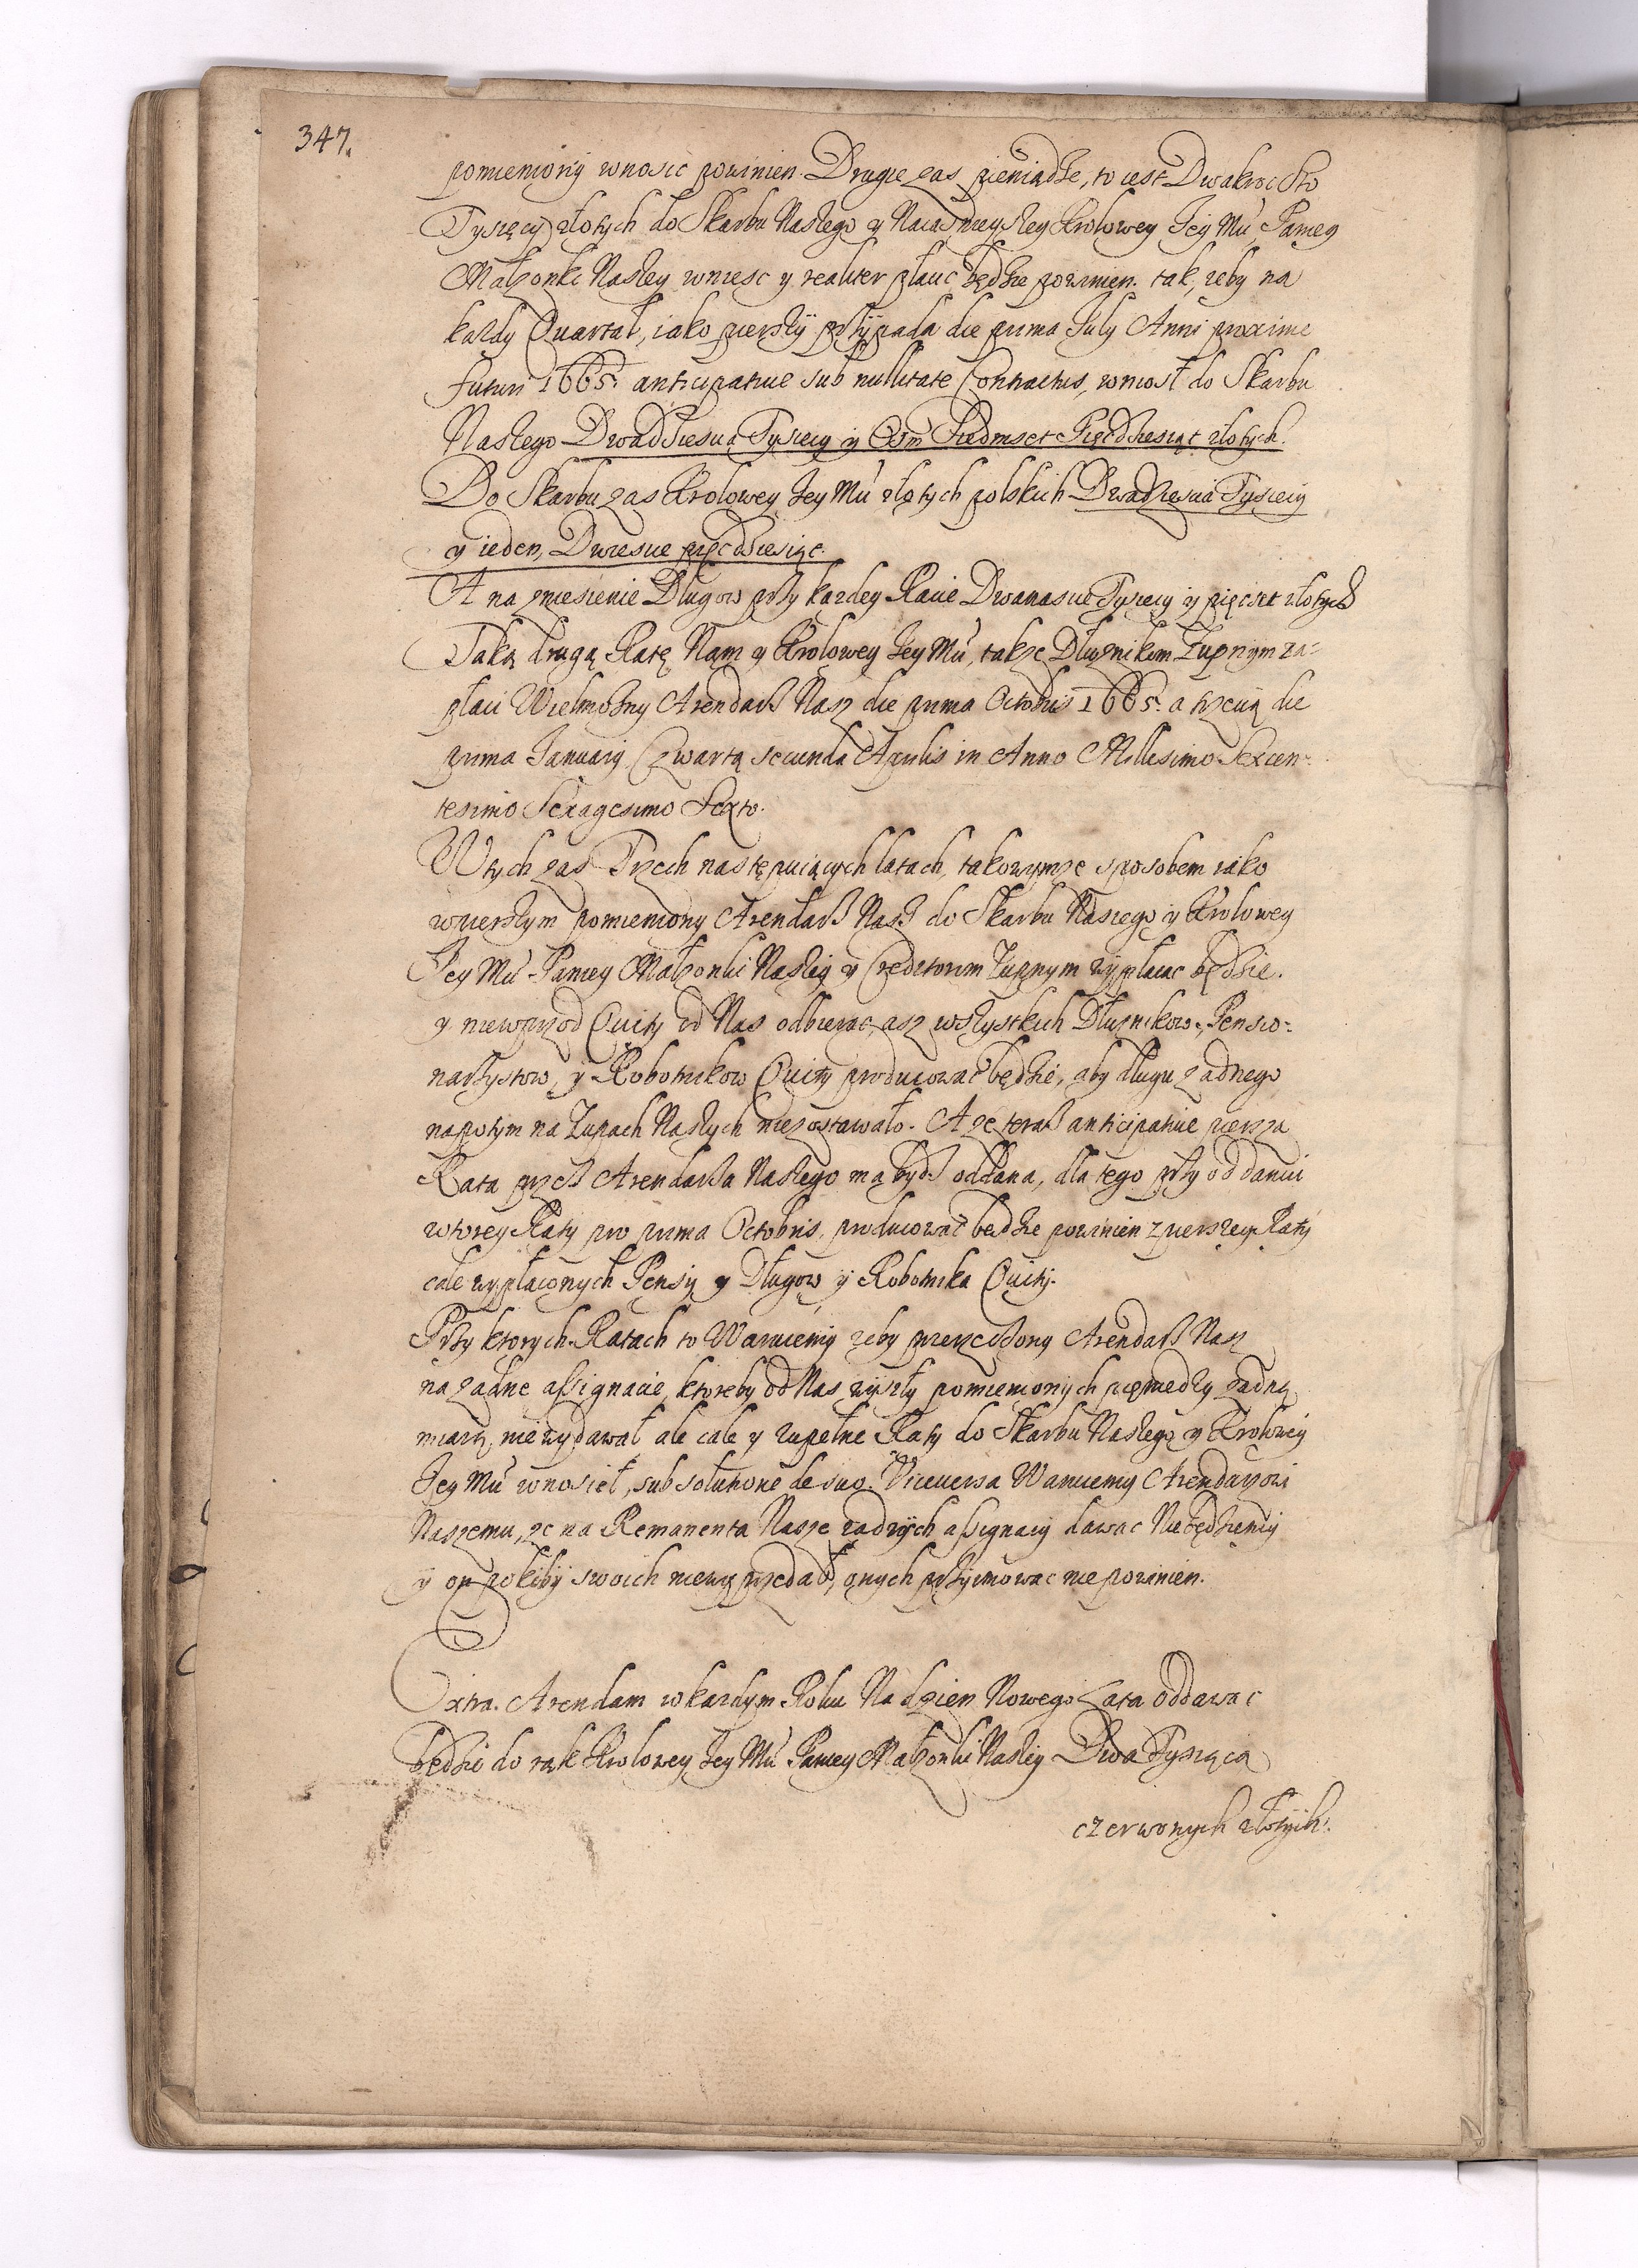 347.
pomieniony wnosic powinien. Drugie zas pieniądze, to iest Dwakroc sto
Tysięcy złotych do Skarbu Naszego y Naiasnieyszey Krolowey Jey Mci Paniey
Małzonki Naszey wniesc y realiter płacic będzie powinien. tak, zeby na
kazdy Quartał, iako pierszy przypada die prima July Anni proxime
futuri 1665. anticipative sub nullitate Contractus, wniosł do Skarbu
Naszego Dwadziescia Tysięcy y Osm Siedmset Pięcdziesiąt złotych.
Do Skarbu zas Krolowey Jey Mci złotych polskich Dwadziescia Tysięcy
y ieden, Dwiescie pięcdziesiąt.
A na zniesienie Długow przy kazdey Racie Dwanascie Tysięcy y pięcset złotych
Taką drugą Ratę Nam y Krolowey Jey Mci, takze Dłuznikom Zupnym za-
płaci Wielmozny Arendarz Nasz die prima Octobris 1665. a trzecią die
prima January Czwartą secunda Aprilis in Anno Millesimo Sexcen-
tesimo Sexagesimo Sexto.
W tych zas Trzech następuiących latach, takowymze sposobem iako
w pierszym pomieniony Arendarz Nasz do Skarbu Naszego y Krolowey
Jey Mci Paniey Małzonki Naszey y Creditorum Zupnym wypłacac będzie.
y niewprzod Quity od Nas odbierac, asz wszystkich Dłuznikow, Pensio-
narzystow, y Robotnikow Quity producowac będzie, aby długu zadnego
napotym na Zupach Naszych niezostawało. A ze teraz anticipative piersza
Rata przez Arendarza Naszego ma bydz oddana, dla tego przy oddaniu
wtorey Raty pro prima Octobris, producowac będzie powinien z pierszey Raty
cale wypłaconych Pensij y Długow y Robotnika Quity.
Przy ktorych Ratach to Waruiemy zeby przerzeczony Arendarz Nasz
na zadne assignacie, ktoreby od Nas wyszły pomienionych pieniędzy zadną
miarą, niewydawał ale cale y zupełne Raty do Skarbu Naszego y Krolowey
Jey Mci wnosieł, sub solutione de suo. Viceversa Waruiemy Arendarzowi
Naszemu, ze na Remanenta Nasze zadnych assignacij dawac Niebędziemy
y on pokiby swoich niewyprzedał, onych przyimowac nie powinien.
Extra Arendam w kazdym Roku Na dzien Nowego Lata oddawac
będzie do rąk Krolowey Jey Mci Paniey Małzonki Naszey Dwa Tysiąca
czerwonych złotych.